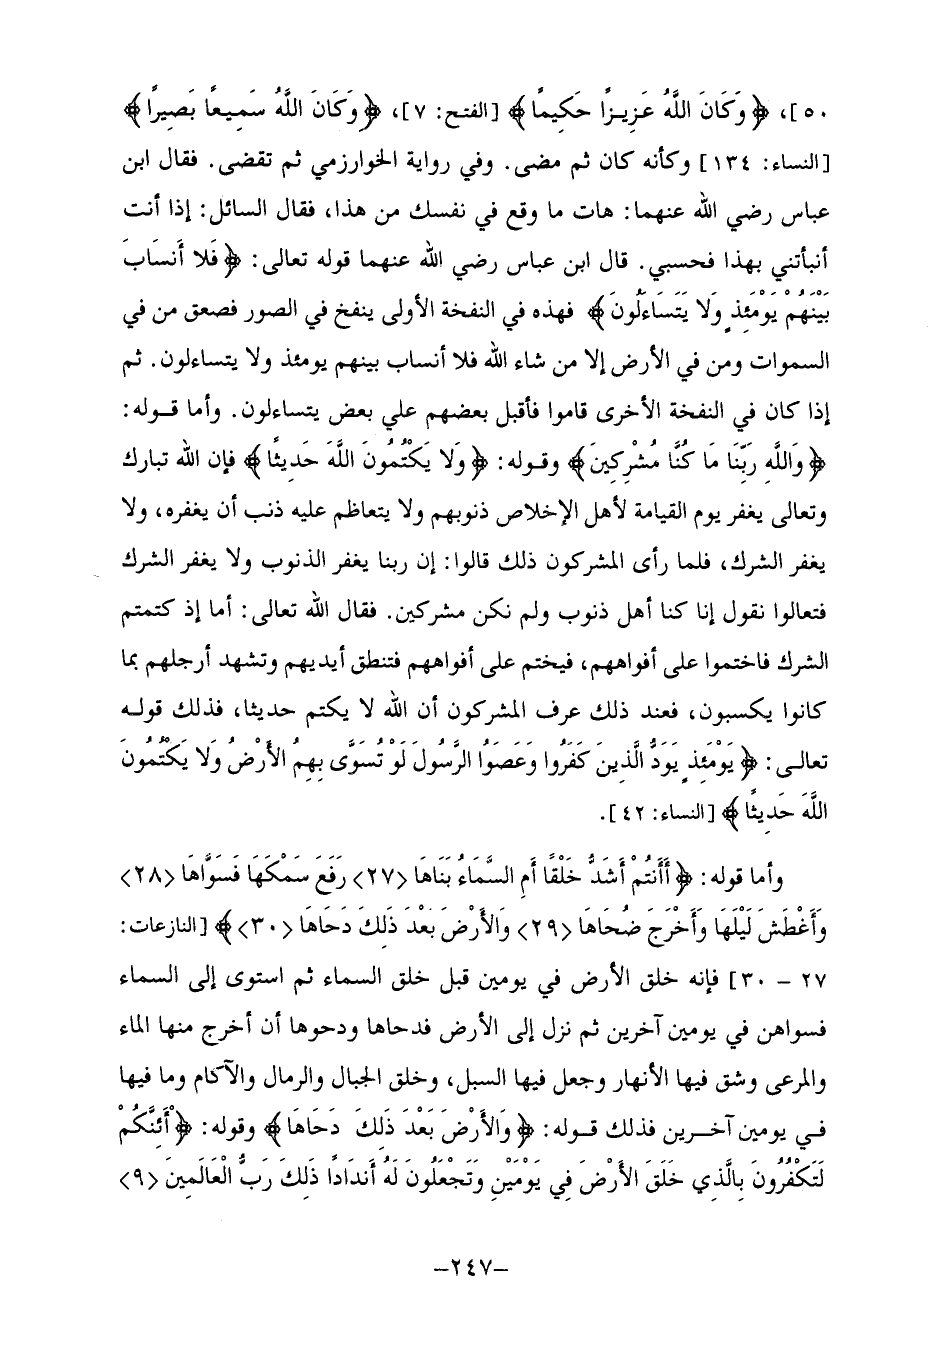 ٥٠]، ﴿وَكَانَ اللَّهُ عَزِيزًا حَكِيمًا﴾ [الفتح: ٧]، ﴿وَكَانَ اللَّهُ سَمِيعًا بَصِيرًا﴾
[النساء: ١٣٤] وكأنه كان ثم مضى. وفي رواية الخوارزمي ثم تقضى. فقال ابن
عباس رضي الله عنهما: هات ما وقع في نفسك من هذا، فقال السائل: إذا أنت
أنبأتني بهذا فحسبي. قال ابن عباس رضي الله عنهما قوله تعالى: ﴿فَلا أَنسَابَ
بَيْنَهُمْ يَوْمَئِذٍ وَلا يَتَسَاءَلُونَ﴾ فهذه في النفخة الأولى ينفخ في الصور فصعق من في
السموات ومن في الأرض إلا من شاء الله فلا أنساب بينهم يومئذ ولا يتساءلون. ثم
إذا كان في النفخة الأخرى قاموا فأقبل بعضهم علي بعض يتساءلون. وأما قوله:
﴿وَاللَّهِ رَبِّنَا مَا كُنَّا مُشْرِكِينَ﴾ وقوله: ﴿وَلا يَكْتُمُونَ اللَّهَ حَدِيثًا﴾ فإن الله تبارك
وتعالى يغفر يوم القيامة لأهل الإخلاص ذنوبهم ولا يتعاظم عليه ذنب أن يغفره، ولا
يغفر الشرك، فلما رأى المشركون ذلك قالوا: إن ربنا يغفر الذنوب ولا يغفر الشرك
فتعالوا نقول إنا كنا أهل ذنوب ولم نكن مشركين. فقال الله تعالى: أما إذ كتمتم
الشرك فاختموا على أفواههم، فيختم على أفواههم فتنطق أيديهم وتشهد أرجلهم بما
كانوا يكسبون، فعند ذلك عرف المشركون أن الله لا يكتم حديثا، فذلك قوله
تعالى: ﴿يَوْمَئِذٍ يَوَدُّ الَّذِينَ كَفَرُوا وَعَصَوُا الرَّسُولَ لَوْ تُسَوَّى بِهِمُ الأَرْضُ وَلا يَكْتُمُونَ
اللَّهَ حَدِيثًا﴾ [النساء: ٤٢].
وأما قوله: ﴿أَأَنتُمْ أَشَدُّ خَلْقًا أَمِ السَّمَاءُ بَنَاهَا <٢٧> رَفَعَ سَمْكَهَا فَسَوَّاهَا <٢٨>
وَأَغْطَشَ لَيْلَهَا وَأَخْرَجَ ضُحَاهَا <٢٩> وَالأَرْضَ بَعْدَ ذَلِكَ دَحَاهَا <٣٠>﴾ [النازعات:
٢٧ - ٣٠] فإنه خلق الأرض في يومين قبل خلق السماء ثم استوى إلى السماء
فسواهن في يومين آخرين ثم نزل إلى الأرض فدحاها ودحوها أن أخرج منها الماء
والمرعى وشق فيها الأنهار وجعل فيها السبل، وخلق الجبال والرمال والآكام وما فيها
في يومين آخرين فذلك قوله: ﴿وَالأَرْضَ بَعْدَ ذَلِكَ دَحَاهَا﴾ وقوله: ﴿أَئِنَّكُمْ
لَتَكْفُرُونَ بِالَّذِي خَلَقَ الأَرْضَ فِي يَوْمَيْنِ وَتَجْعَلُونَ لَهُ أَندَادًا ذَلِكَ رَبُّ الْعَالَمِينَ <٩>
-٢٤٧-